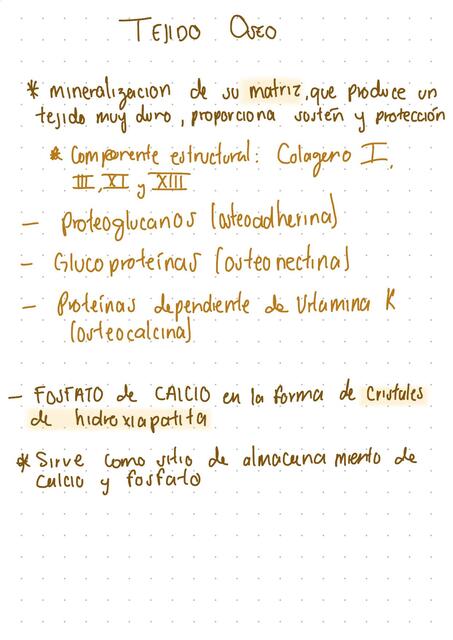 TEJIDO OSEO
* mineralizacion de su matriz, que produce un
tejido muy duro, proporciona sostén y protección
* Componente estructural: Colageno I,
III, XI y XIII
- Proteoglucanos (osteoadherina)
- Glucoproteínas (osteonectina)
- Proteínas dependiente de Vitamina K
(osteocalcina)
- FOSFATO de CALCIO en la forma de cristales
de hidroxiapatita
* Sirve como sitio de almacena miento de
calcio y fosfato